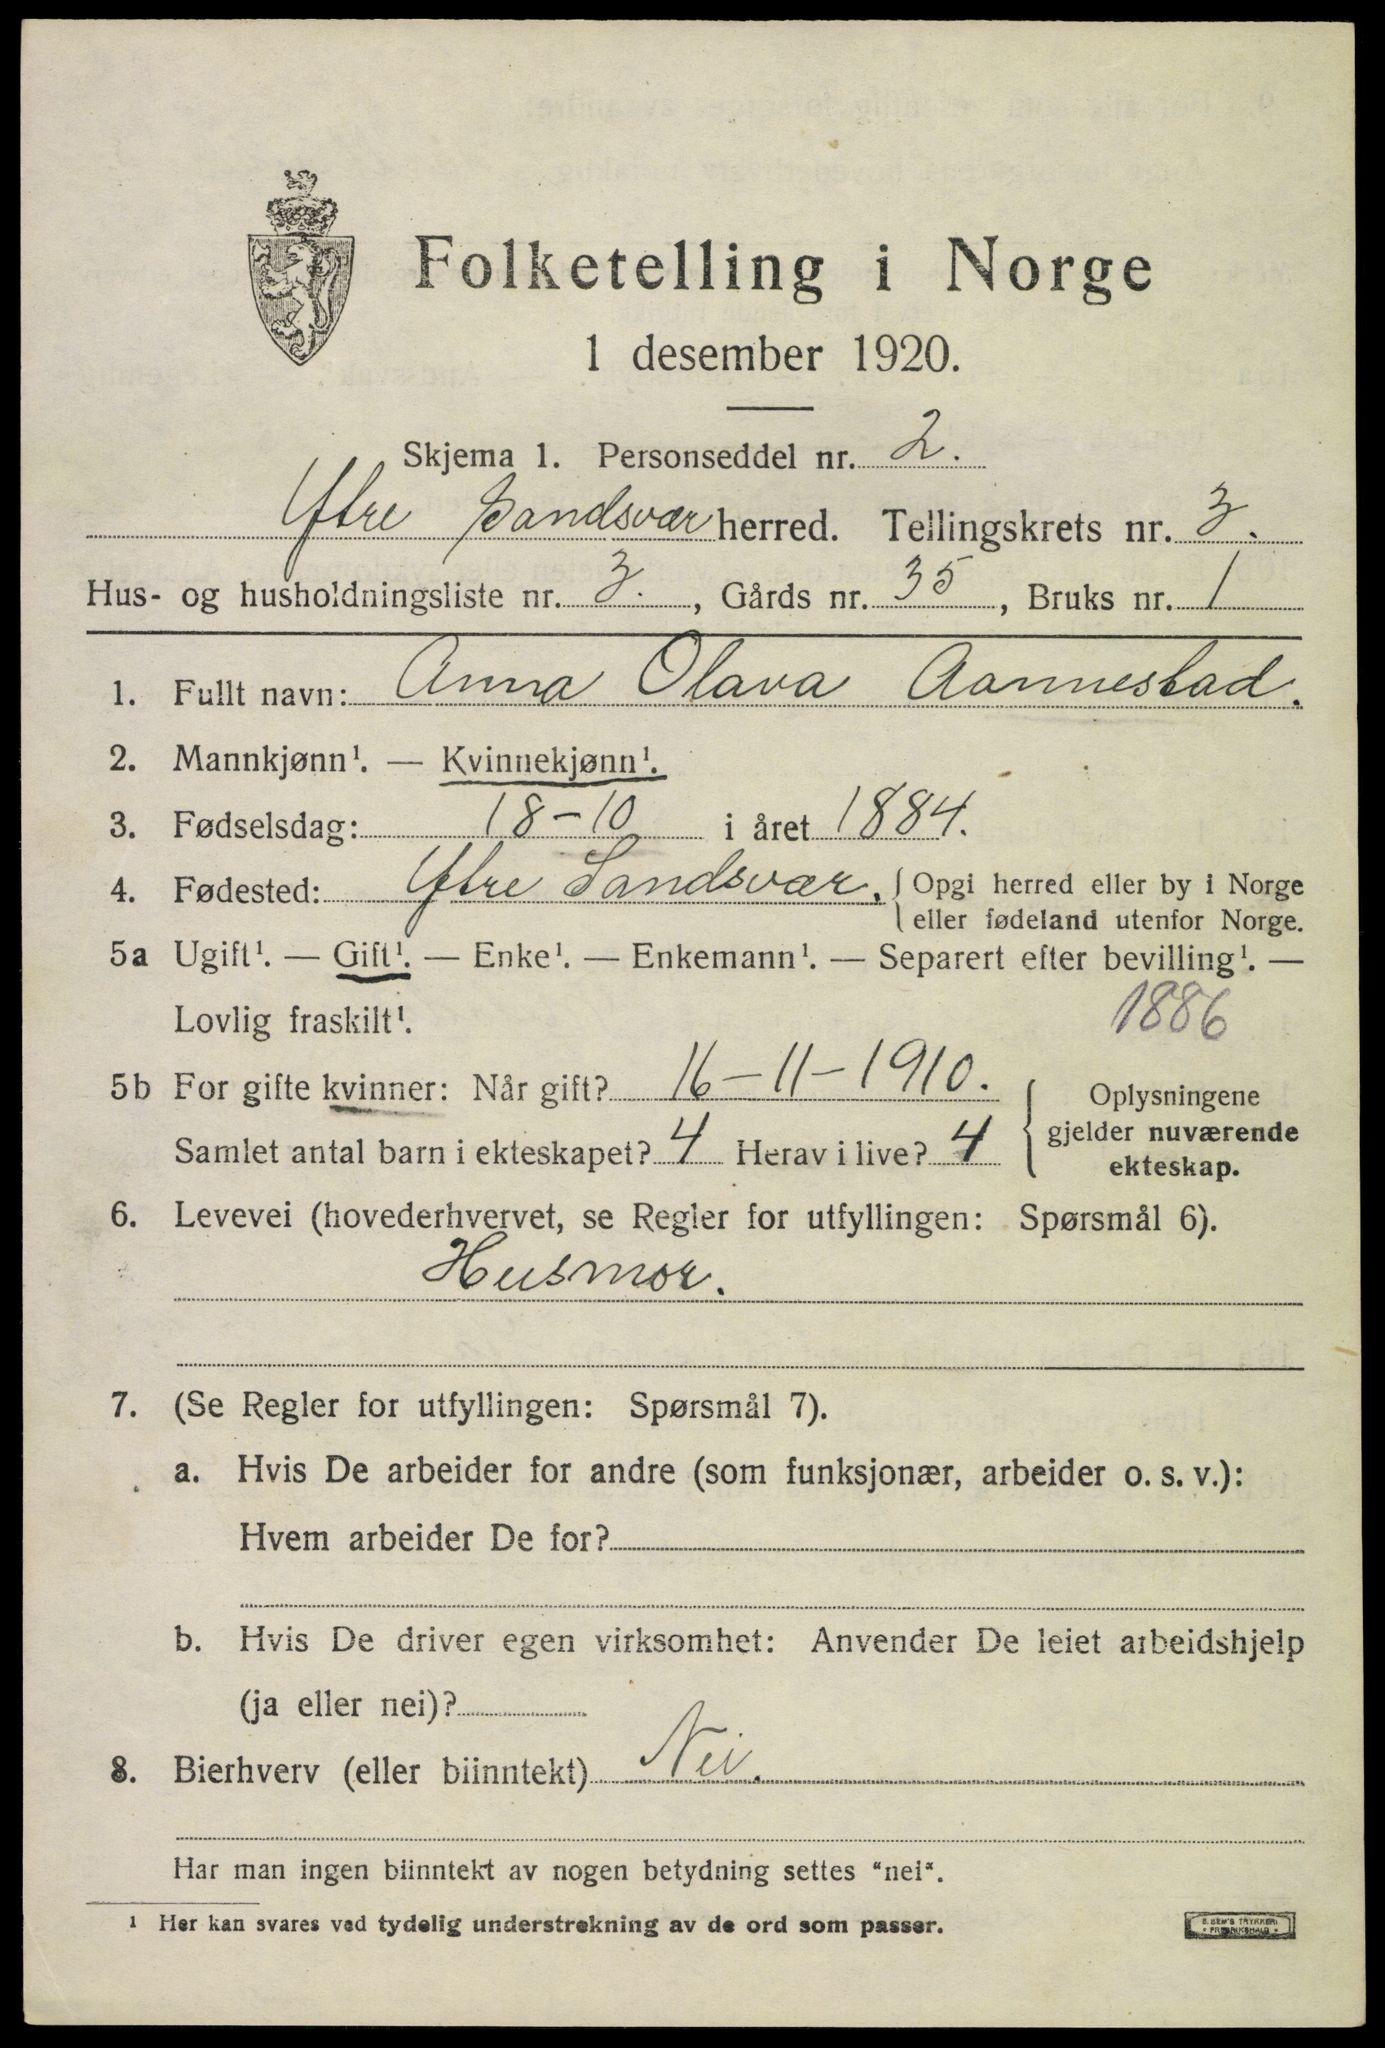 Folketelling i Norge
1 desember 1920.
Skjema 1. Personseddel nr. 2.
Ytre Sandsvær herred. Tellingskrets nr. 3.
Hus- og husholdningsliste nr. 3., Gårds nr. 35, Bruks nr. 1
1. Fullt navn: Anna Olava Aannestad.
2. Mannkjønn¹. — Kvinnekjønn¹.
3. Fødselsdag: 18-10 i året 1884.
4. Fødested: Ytre Sandsvær. { Opgi herred eller by i Norge
eller fødeland utenfor Norge.
5a Ugift¹. — Gift¹. — Enke¹. — Enkemann¹. — Separert efter bevilling¹. —
Lovlig fraskilt¹. 1886
5b For gifte kvinner: Når gift? 16-11-1910.
Samlet antal barn i ekteskapet? 4 Herav i live? 4
{ Oplysningene
gjelder nuværende
ekteskap.
6. Levevei (hovederhvervet, se Regler for utfyllingen: Spørsmål 6).
Husmor.
7. (Se Regler for utfyllingen: Spørsmål 7).
a. Hvis De arbeider for andre (som funksjonær, arbeider o. s. v.):
Hvem arbeider De for?
b. Hvis De driver egen virksomhet: Anvender De leiet arbeidshjelp
(ja eller nei)?
8. Bierhverv (eller biinntekt) Nei.
Har man ingen biinntekt av nogen betydning settes "nei".
¹ Her kan svares ved tydelig understrekning av de ord som passer.
S. BEM'S TRYKKERI
• FREDRIKSHALD •